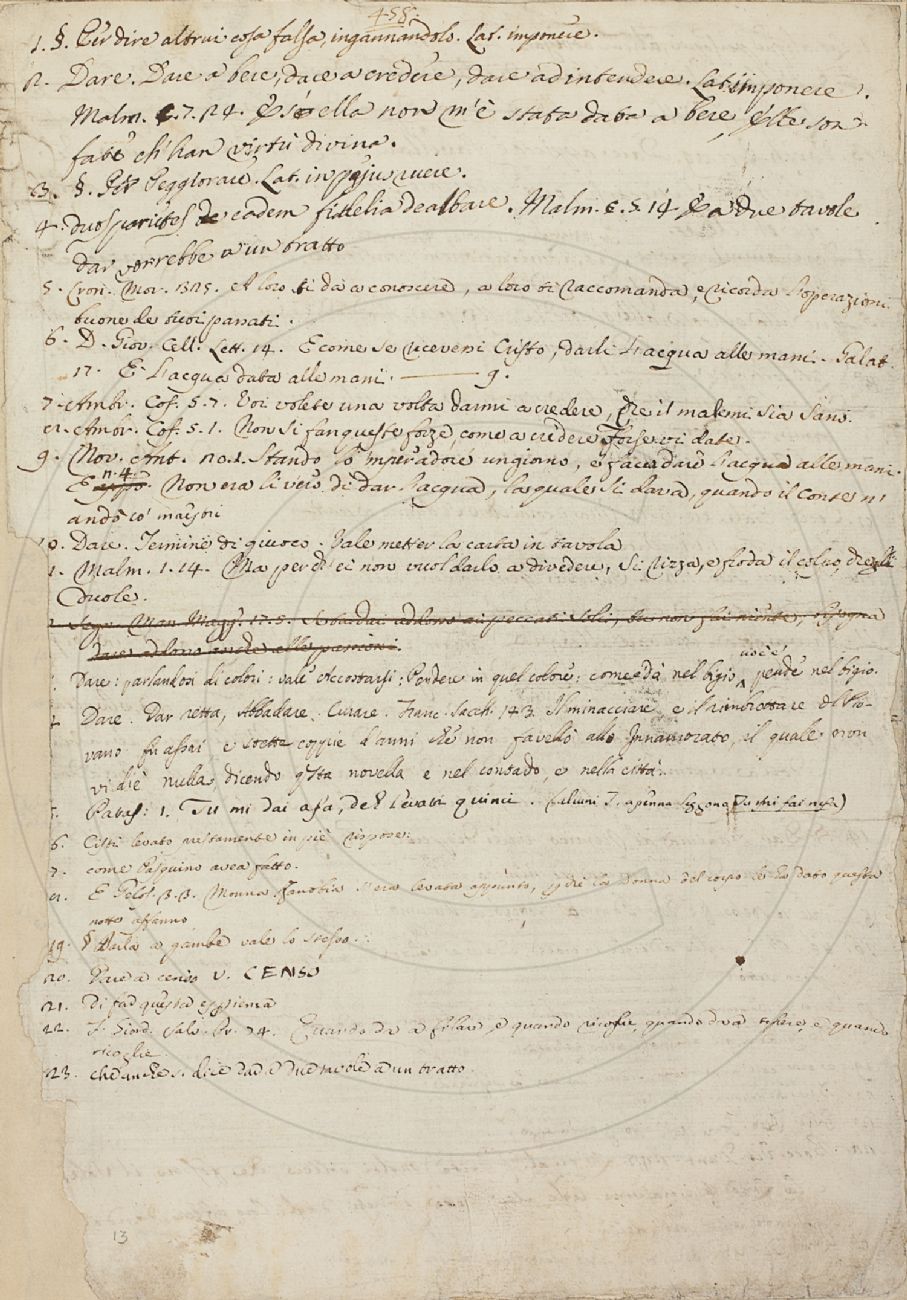 458.
1. §. Per dire altrui cosa falsa, ingannandolo. Lat. imponere.
2. Dare. Dare a bere, dare a credere, dare ad intendere. Lat. imponere.
Malm. 7. 24. ella non m'è stata data a bere, Elle son
fate ch'han virtù divina.
3. §. Per Peggiorare. Lat. in pejus ruere.
4. duos parietes de eadem fidelia dealbare. Malm. 6. 5. 14 E a due tavole
dar vorrebbe a un tratto
5. Cron. Mor. 1325. A loro si dà a conoscere, a loro si raccomanda, e ricorda l'operazioni
buone de suoi passati.
6. D. Giov. Cell. Lett. 14. E come se ricevessi Cristo, darli l'acqua alle mani. Galat.
17. E l'acqua data alle mani. ——— 9.
7. Ambr. Cof. 5. 7. Voi volete una volta darmi a credere, che il male mi sia sano.
8. Ambr. Cof. 5. 1. Non si fan queste forze, come a credere forse vi date.
9. Nov. Ant. 20. 1. Stando lo 'mperadore un giorno, e facea dare l'acqua alle mani.
E n. 4. Non era li vero di dar l'acqua, la quale si dava, quando il Conte
andò co' maggiori
10. Dare. Termine di giuoco. Vale metter la carta in tavola
1. Malm. 1. 14. Ma perch' ei non vuol darlo a divedere, Si rizza, e froda il colpo, che gli
duole.
Segn. Man. Magg. 17. 5. Se bardai addosso ai peccati soli, tu non fai niente, bisogna
dare addosso anche alle passioni.
Dare: parlandosi di colori: vale Accostarsi: Pendere in quel colore: come dà nel bigio, cioè pende nel bigio.
Dare. Dar retta, Abbadare. Curare. Franc. Sacch. 143. Il minacciare e il rimbrottare del Pio-
vano fu assai e stette coppie d'anni che non favellò allo Innamorato, il quale non
vi diè nulla dicendo questa novella e nel contado, e nella città.
5. Pataff: 1. Tu mi dai afa, deh levati quinci. (Salvini T. a penna legge Tu mi fai afa)
6. Cisti levato prestamente in piè rispose:
7. come Pasquino avea fatto.
8. E Gelos. 3. 3. Monna Zanobia s'era levata appunto, perchè la donna del corpo le ha dato questa
notte affanno
19. § Darla a gambe vale lo stesso.
20. Dare a censo V. CENSO
21. Di far questa esperienza
22. F. Giord. Salv. Pr. 74. Quando dà a filare e quando ricoglie, quando dà a tessere e quando
ricoglie.
23. che anche si dice dare a due tavole a un tratto
13